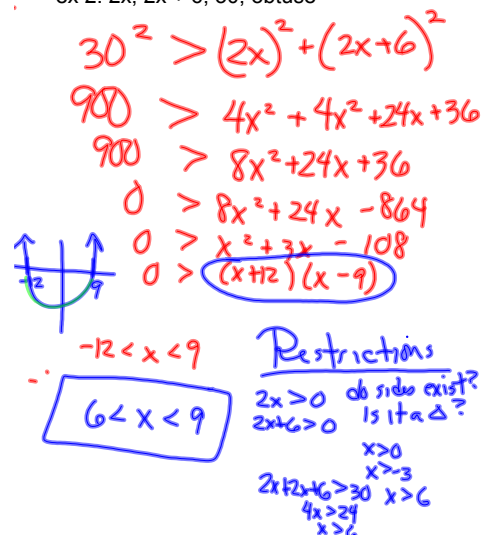 ex 2: 2x, 2x + 6, 30, obtuse
30² > (2x)² + (2x+6)²
900 > 4x² + 4x² + 24x + 36
900 > 8x² + 24x + 36
0 > 8x² + 24x - 864
0 > x² + 3x - 108
0 > (x+12)(x-9)
-12 9
-12 < x < 9
6 < x < 9
Restrictions
2x > 0 do sides exist?
2x+6 > 0 Is it a Δ?
x > 0
x > -3
2x+2x+6 > 30 x > 6
4x > 24
x > 6